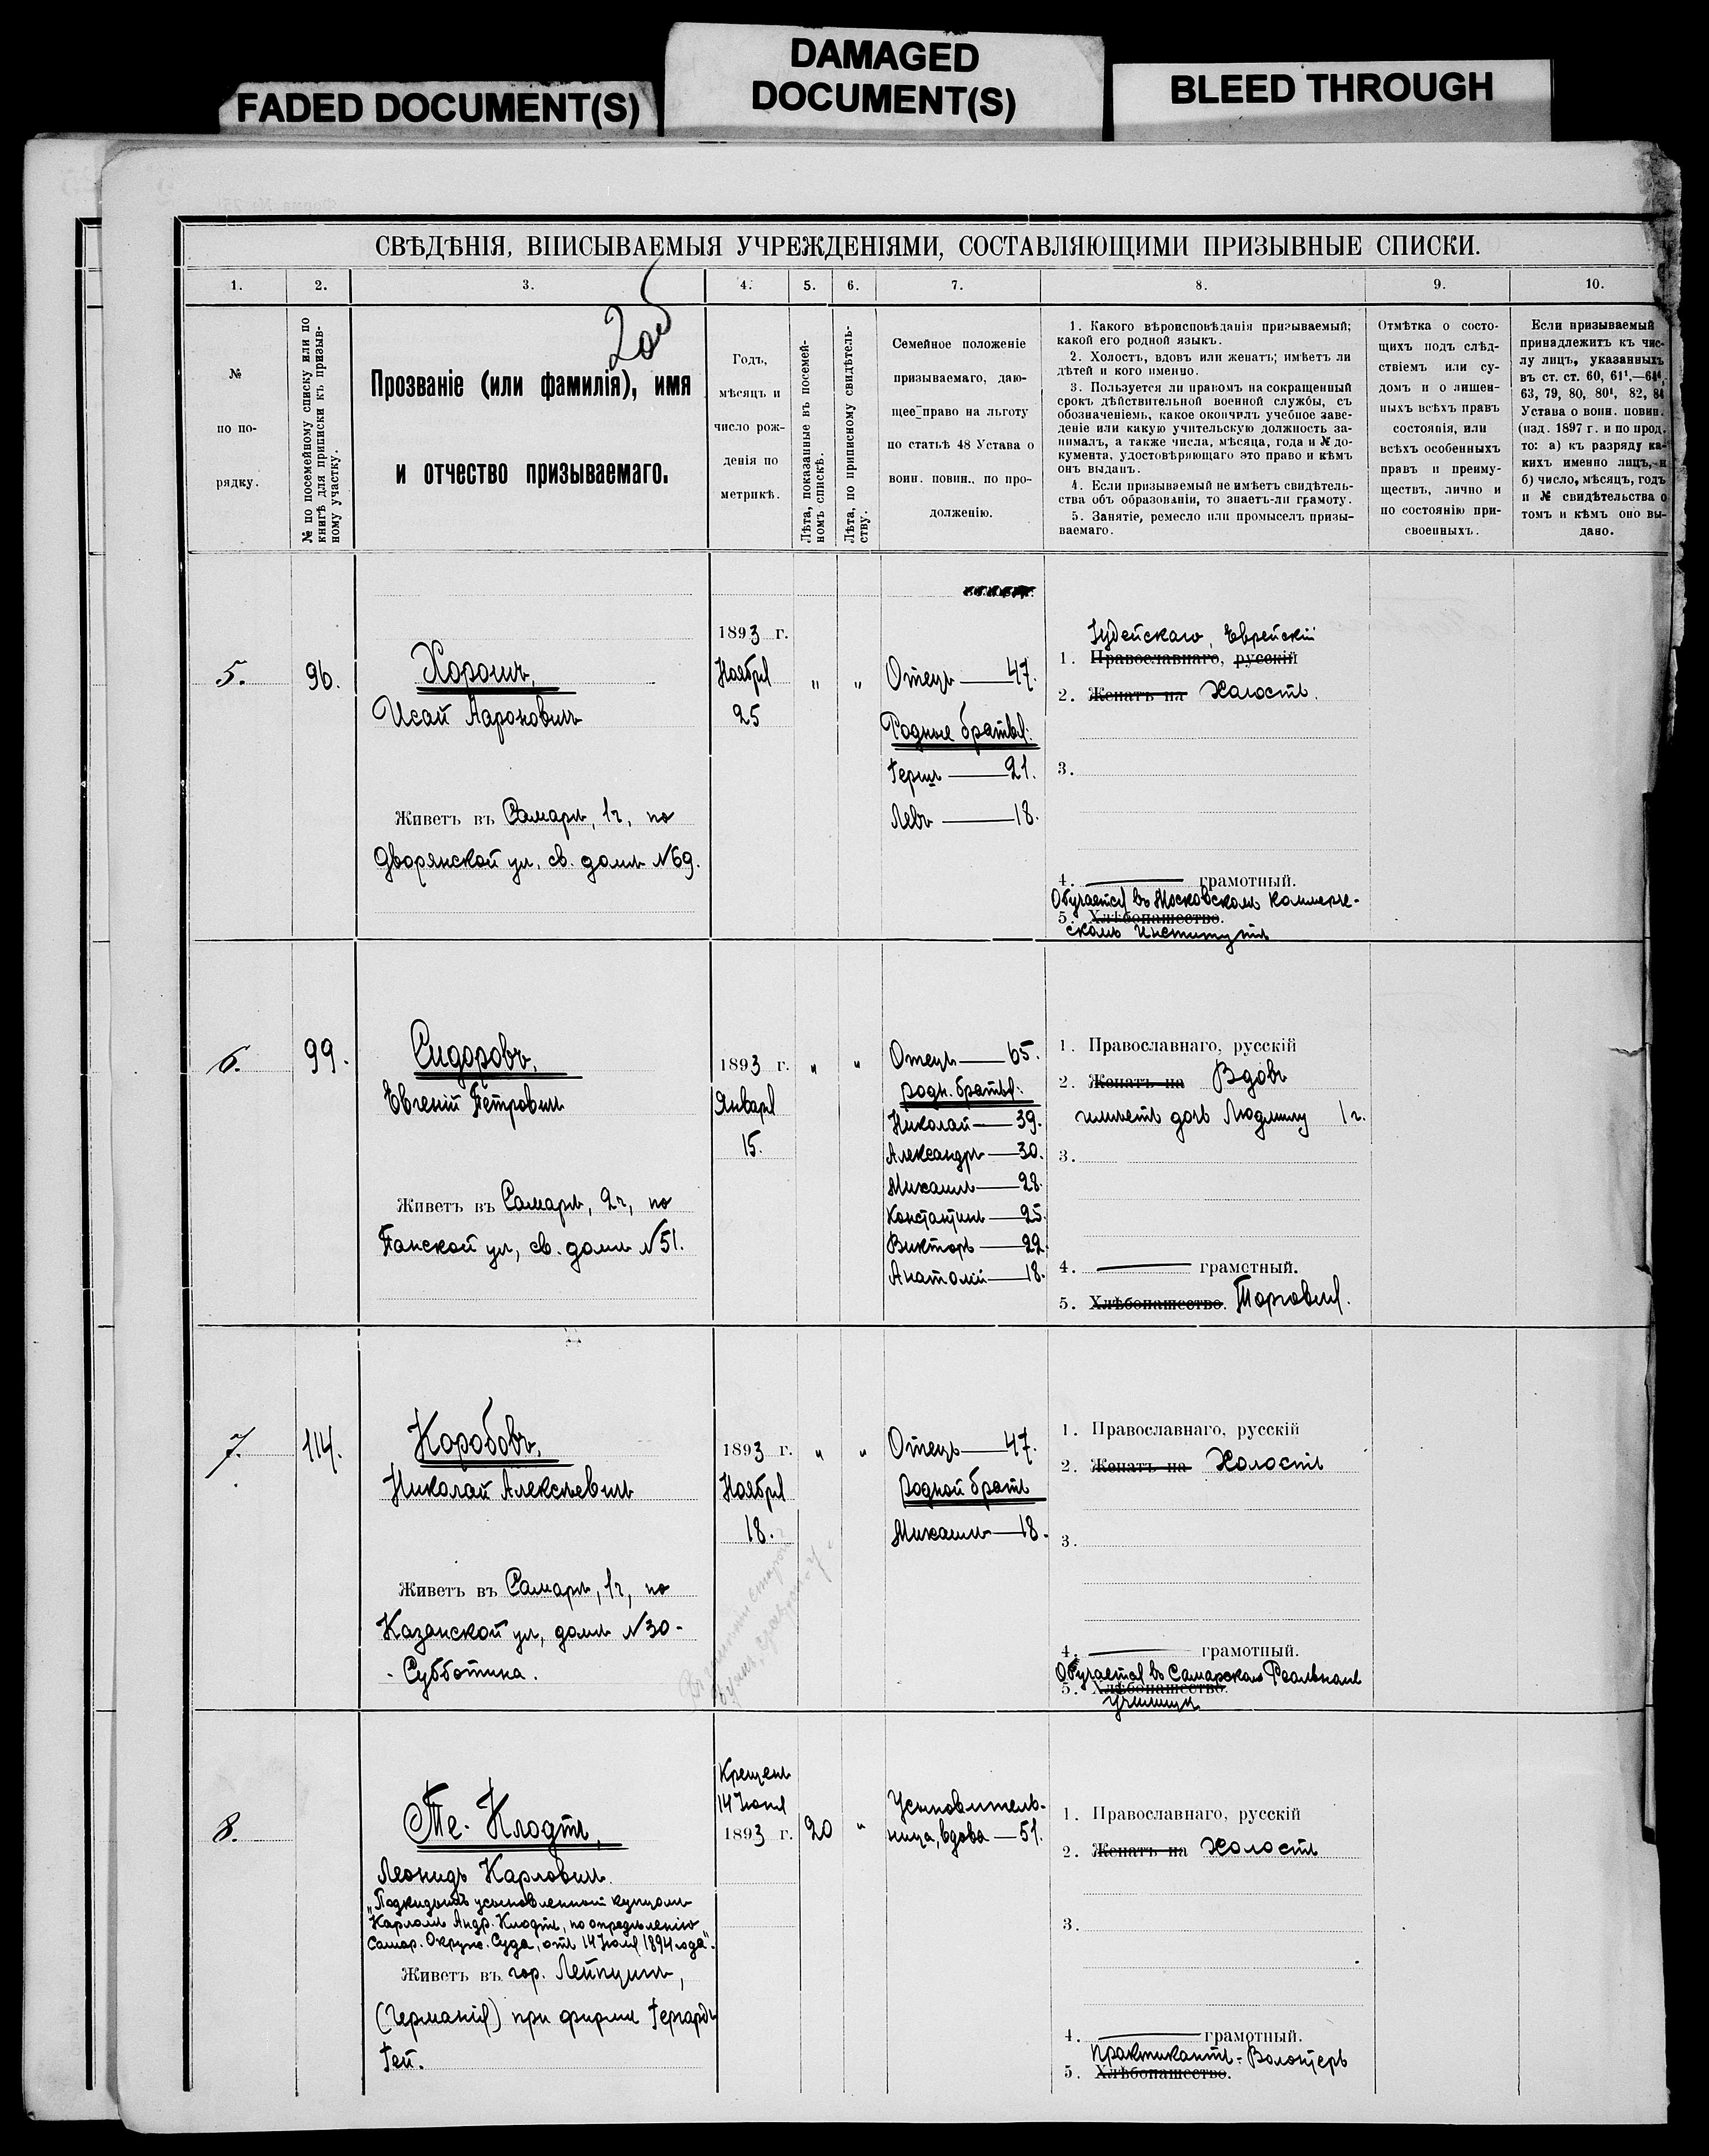 FADED DOCUMENT(S)
DAMAGED
DOCUMENT(S)
BLEED THROUGH
СВѢДѢНІЯ, ВПИСЫВАЕМЫЯ УЧРЕЖДЕНІЯМИ, СОСТАВЛЯЮЩИМИ ПРИЗЫВНЫЕ СПИСКИ.
1. 2. 3. 4. 5. 6. 7. 8. 9. 10.
№
по по-
рядку.
№ по посемейному списку или по
книгѣ для приписки къ призыв-
ному участку.
Прозваніе (или фамилія), имя
и отчество призываемаго.
Годъ,
мѣсяцъ и
число рож-
денія по
метрикѣ.
Лѣта, показанные въ посемей-
номъ спискѣ.
Лѣта, по приписному свидѣтель-
ству.
Семейное положеніе
призываемаго, даю-
щее право на льготу
по статьѣ 48 Устава о
воин. повин., по про-
долженію.
1. Какого вѣроисповѣданія призываемый;
какой его родной языкъ.
2. Холостъ, вдовъ или женатъ; имѣетъ ли
дѣтей и кого именно.
3. Пользуется ли правомъ на сокращенный
срокъ дѣйствительной военной службы, съ
обозначеніемъ, какое окончилъ учебное заве-
деніе или какую учительскую должность за-
нималъ, а также числа, мѣсяца, года и № до-
кумента, удостовѣряющаго это право и кѣмъ
онъ выданъ.
4. Если призываемый не имѣетъ свидѣтель-
ства объ образованіи, то знаетъ-ли грамоту.
5. Занятіе, ремесло или промыселъ призы-
ваемаго.
Отмѣтка о состо-
ящихъ подъ слѣд-
ствіемъ или су-
домъ и о лишен-
ныхъ всѣхъ правъ
состоянія, или
всѣхъ особенныхъ
правъ и преиму-
ществъ, лично и
по состоянію при-
своенныхъ.
Если призываемый
принадлежитъ къ чис-
лу лицъ, указанныхъ
въ ст. ст. 60, 61¹.—64⁴,
63, 79, 80, 80¹, 82, 84
Устава о воин. повин.
(изд. 1897 г. и по прод.
то: а) къ разряду ка-
кихъ именно лицъ, и
б) число, мѣсяцъ, годъ
и № свидѣтельства о
томъ и кѣмъ оно вы-
дано.
5.
96.
Хорошъ,
Исай Аароновичъ
Живетъ въ Самарѣ, 1ч, по
Дворянской ул, св. домъ №69.
1893 г.
Ноября
25
" "
Отецъ — 47.
Родные братья:
Гершъ — 21.
Левъ — 18.
Іудейскаго, Еврейскій
1. Православнаго, русскій
2. Женатъ на Холостъ.
3.
4. грамотный.
Обучается въ Московскомъ Коммерче-
5. Хлѣбопашество.
скомъ Институтѣ
6.
99.
Сидоровъ,
Евгеній Петровичъ
Живетъ въ Самарѣ, 2ч, по
Панской ул, св. домъ №51.
1893 г.
Января
15.
" "
Отецъ — 65.
родн. братья:
Николай — 39.
Александръ — 30.
Михаилъ — 28.
Константинъ — 25.
Викторъ — 22.
Анатолій — 18.
1. Православнаго, русскій
2. Женатъ на Вдовъ
имѣетъ дочь Людмилу 1 г.
3.
4. грамотный.
5. Хлѣбопашество. Торговля.
7.
114.
Коробовъ,
Николай Алексѣевичъ
Живетъ въ Самарѣ, 1ч, по
Казанской ул, домъ №30-
Субботина.
1893 г.
Ноября
18.
" "
Отецъ — 47.
родной братъ
Михаилъ — 18.
1. Православнаго, русскій
2. Женатъ на Холостъ
3.
4. грамотный.
Обучается въ Самарскомъ Реальномъ
5. Хлѣбопашество.
училищѣ
8.
Те-Клодтъ,
Леонидъ Карловичъ.
"Подкидышъ усыновленный купцомъ
Карломъ Андр. Клодтъ, по опредѣленію
Самар. Окруж. Суда, отъ 14 Іюля 1894 года".
Живетъ въ гор. Лейпцигѣ,
(Германія) при фирмѣ Гергардъ
Гей.
Крещенъ
14 Іюня
1893 г.
20 "
Усыновитель-
ница, вдова — 51.
1. Православнаго, русскій
2. Женатъ на Холостъ
3.
4. грамотный.
Практикантъ-Волонтеръ
5. Хлѣбопашество.